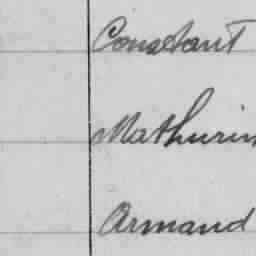 Constant
Mathurin
Armand